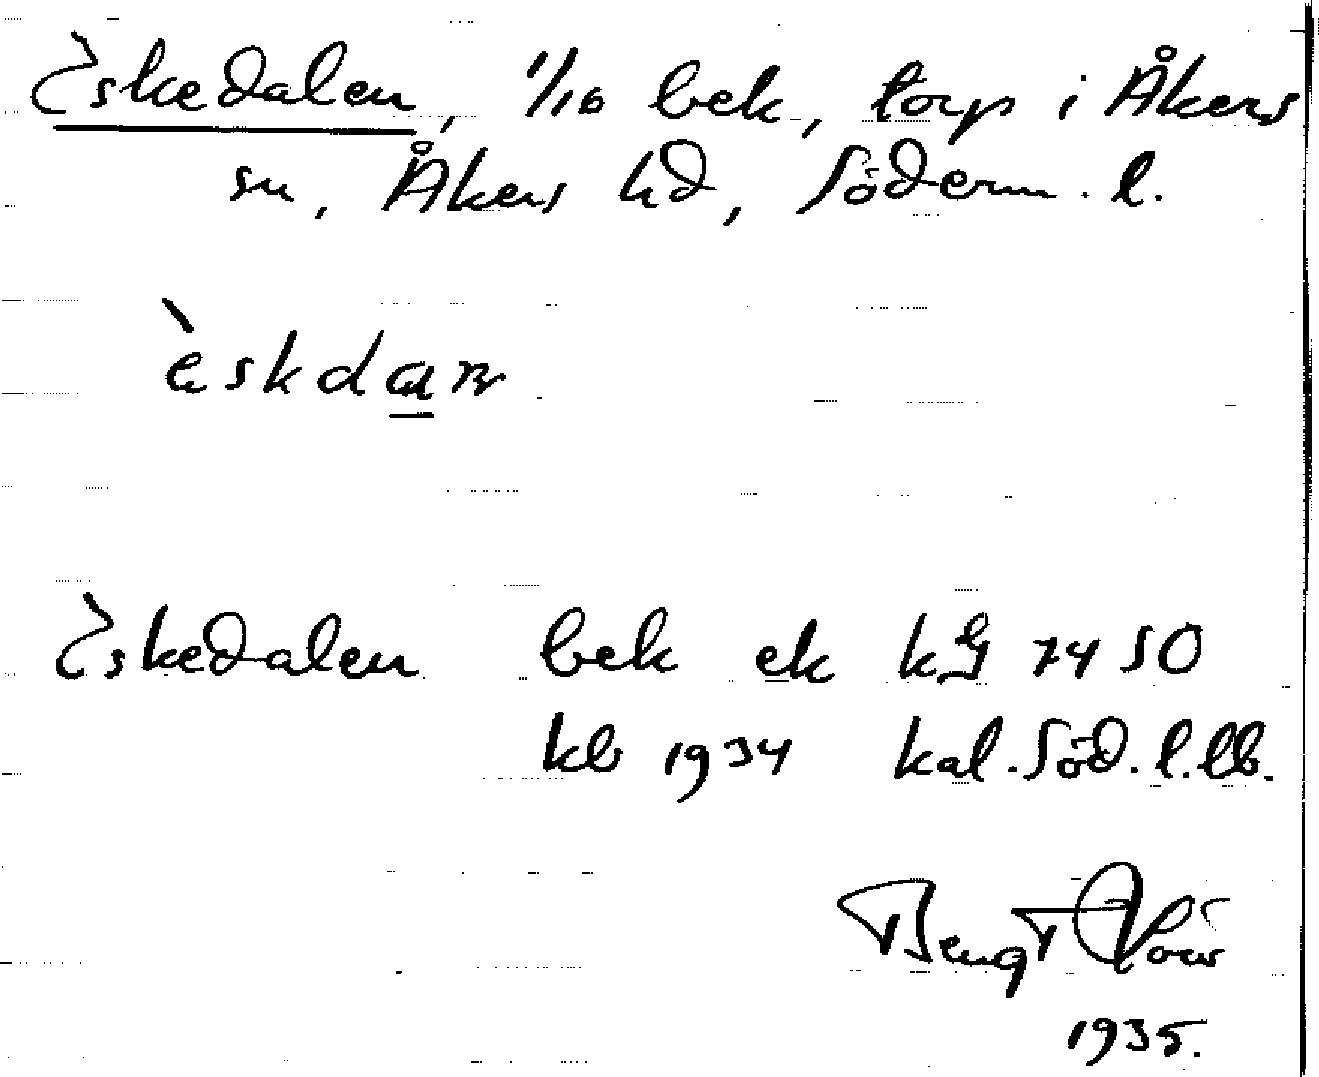 Eskedalen, 1/16 bek, torp i Åkers
sn, Åkers hd, Söderm. l.
èskdan
Eskedalen bek ek kG 7450
kb 1934 kal. Söd. l. lb.
Bengt
1935.